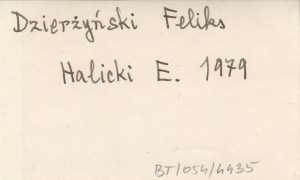 Dzierżyński Feliks
Halicki E. 1979
BT/054/4435